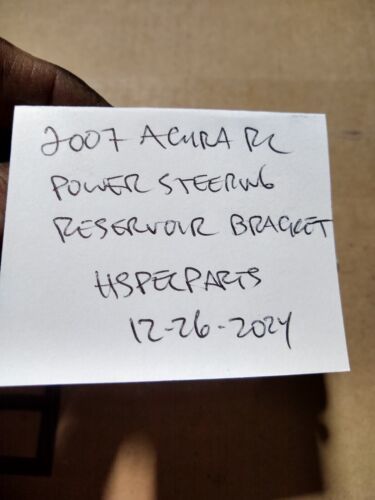 2007 ACURA RL
POWER STEERING
RESERVOIR BRACKET
HSPECPARTS
12-26-2024